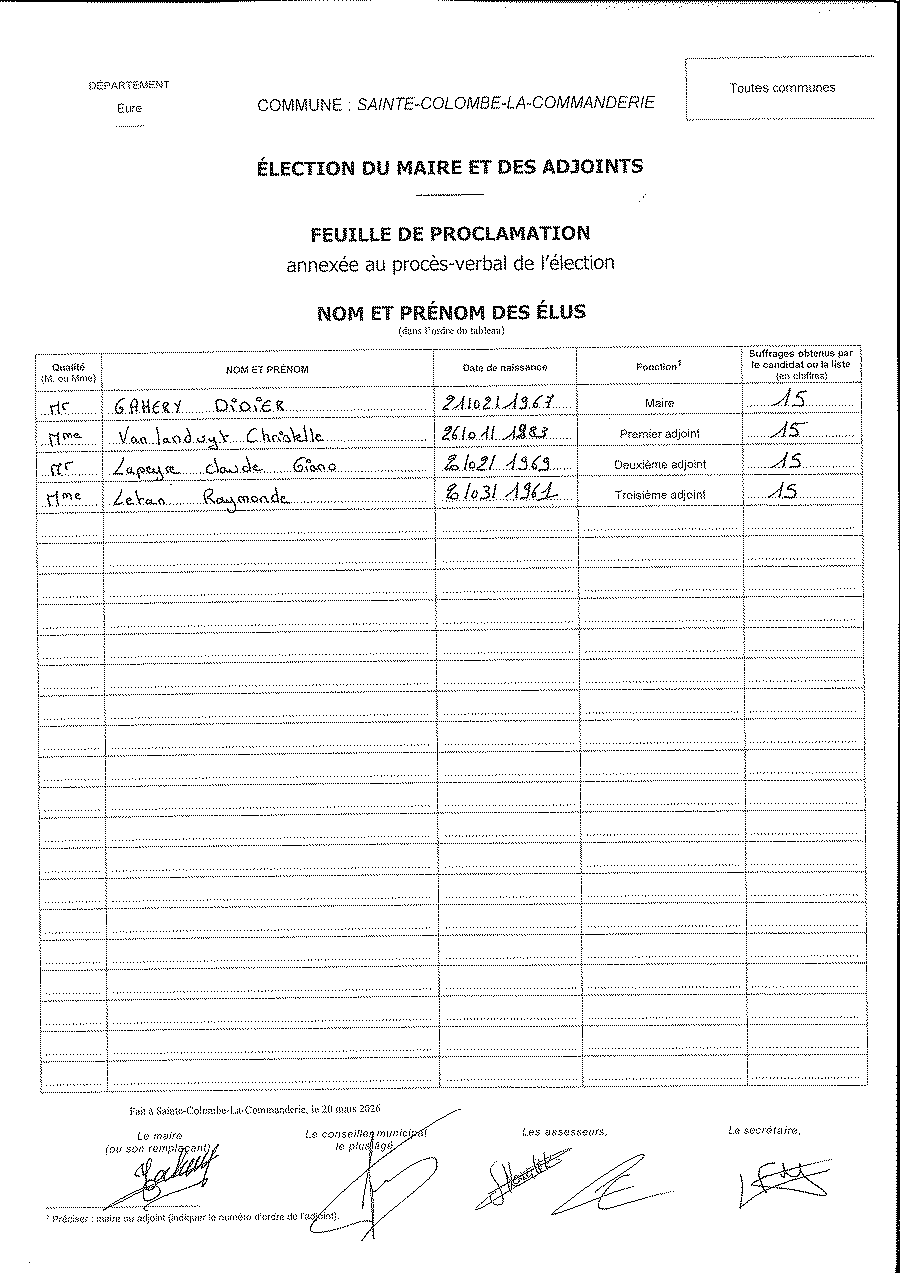 DÉPARTEMENT
Eure
COMMUNE : SAINTE-COLOMBE-LA-COMMANDERIE
Toutes communes
ÉLECTION DU MAIRE ET DES ADJOINTS
FEUILLE DE PROCLAMATION
annexée au procès-verbal de l'élection
NOM ET PRÉNOM DES ÉLUS
(dans l'ordre du tableau)
Qualité (M. ou Mme) NOM ET PRÉNOM Date de naissance Fonction¹ Suffrages obtenus par le candidat ou la liste (en chiffres)
Mr GAHERY DIDIER 21/02/1967 Maire 15
Mme Van landuyt Christelle 26/01/1983 Premier adjoint 15
Mr Lapeyre Claude 8/02/1969 Deuxième adjoint 15
Mme Letan Raymonde 8/03/1961 Troisième adjoint 15
Fait à Sainte-Colombe-La-Commanderie, le 20 mars 2026
Le maire
(ou son remplaçant)
Le conseiller municipal
le plus âgé
Les assesseurs,
Le secrétaire,
¹ Préciser : maire ou adjoint (indiquer le numéro d'ordre de l'adjoint).